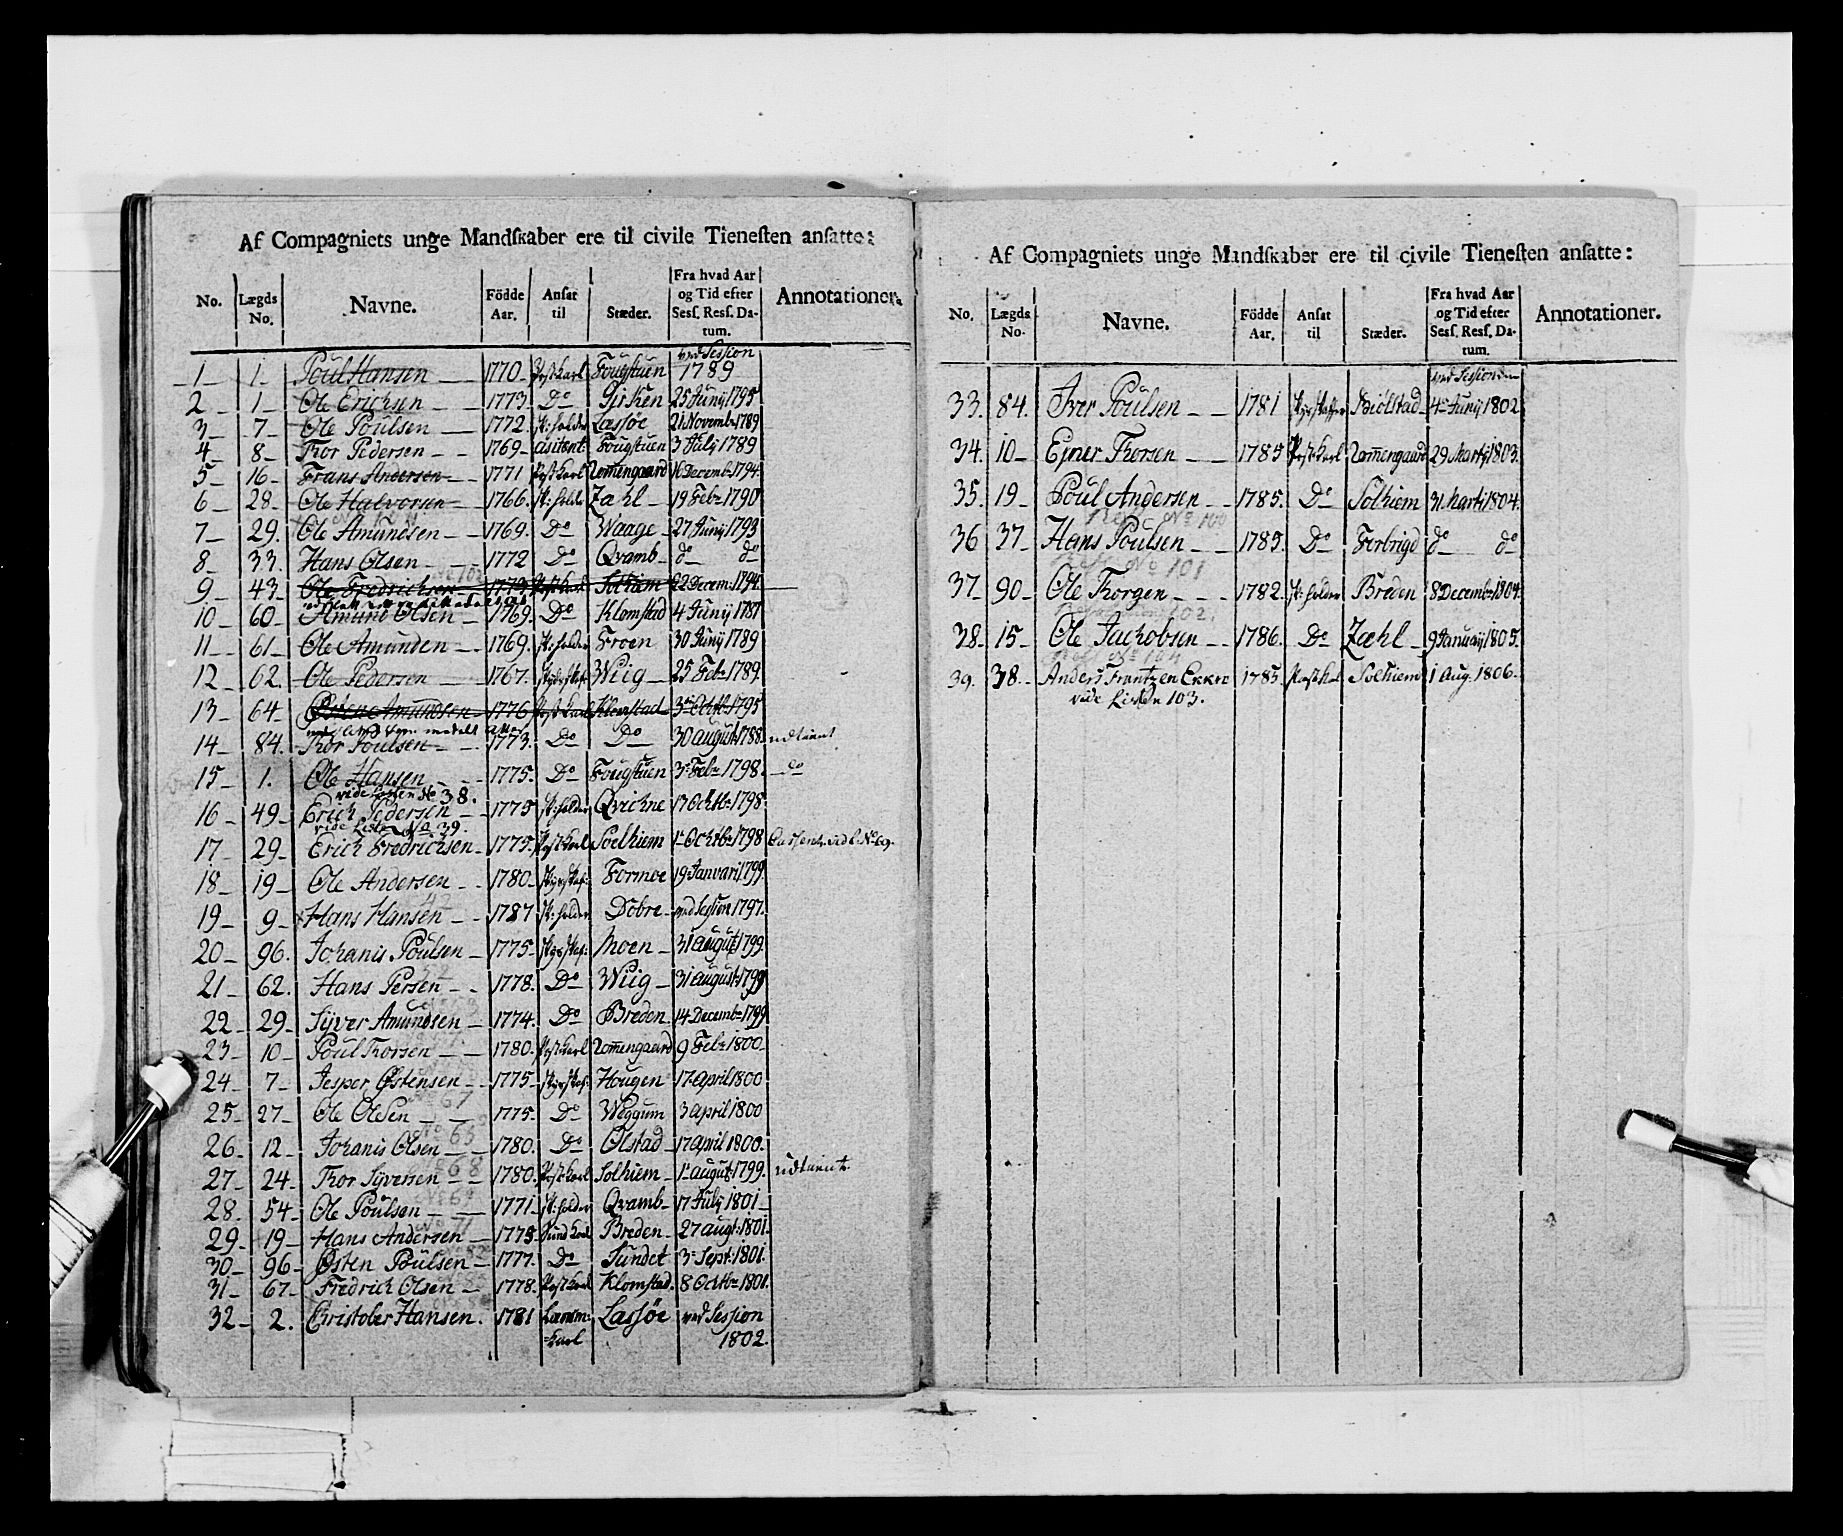 Af Compagniets unge Mandskaber ere til civile Tienesten ansatte:
No. Lægds No. Navne. Födde Aar. Ansat til Stæder. Fra hvad Aar og Tid efter Sess. Ress. Datum. Annotationer.
1 1 Poul Hansen 1770 Postkarl Fougstuen ved Session 1789
2 1 Ole Erichsen 1773 Do Girken 25 Junij 1795
3 7 Ole Poulsen 1772 Sk:holder Lassøe 21 Novembr 1789
4 8 Thor Pedersen 1769 asistent Fougstuen 3 July 1789
5 16 Frans Andersen 1771 Postkarl Tommengaard 16 Decemb 1794
6 28 Ole Halvorsen 1766 Sk:holder Zahl 19 Febr 1790
7 29 Ole Amundsen 1769 Do Waage 27 Junij 1793
8 33 Hans Olsen 1772 Do Qvamb do do
9 43 Ole Fredrichsen 1773 Postkarl Solhiem 22 Decem: 1794
10 60 Amund Olsen 1769 Do Klomstad 4 Junij 1787
11 61 Ole Amunden 1769 Sk:holder Froen 30 Junij 1789
12 62 Ole Pedersen 1767 Wiig 25 Febr 1789
13 64 Amundsen 1776 Postkarl Klomstad 3 Octbr 1795
14 84 Thor Poulsen 1773 Do Do 30 august 1788 udtient
15 1 Ole Hansen 1775 Do Fougstuen 3 Febr 1798 do
vide Listen No 38.
16 49 Erich Pedersen 1775 Sk:holder Qvichne 17 Octbr 1798
vide Listen No 39.
17 29 Erich Fredrichsen 1775 Postkarl Solhiem 1 Octbr 1798
18 19 Ole Andersen 1780 Skydskaf: Formoe 19 Januari 1799
19 9 Hans Hansen 1787 Sk:holder Dobre ved Session 1797
20 96 Johanis Poulsen 1775 Skydskaf: Moen 31 august 1799
21 62 Hans Persen 1778 Do Wiig 31 august 1799
22 29 Syver Amundsen 1774 Do Breden 14 Decembr 1799
23 10 Poul Thorsen 1780 Postkarl Tommengaard 9 Febr 1800
24 7 Jesper Østensen 1775 Skydskaf: Hougen 17 april 1800
25 27 Ole Olsen 1775 Do Weggum 3 april 1800
26 12 Johanis Olsen 1780 Do Olstad 17 april 1800
27 24 Thor Syversen 1780 Postkarl Solhiem 1 august 1799 udtient
28 54 Ole Poulsen 1771 Sk:holder Qvamb 17 July 1801
29 19 Hans Andersen 1775 Sundkarl Breden 27 augt: 1801
30 96 Østen Poulsen 1777 Do Sundet 3 Sept: 1801
31 67 Fredrich Olsen 1778 Postkarl Klomstad 8 Octbr 1801
32 2 Christofer Hansen 1781 Lassøe ved Session 1802
Af Compagniets unge Mandskaber ere til civile Tienesten ansatte:
No. Lægds No. Navne. Födde Aar. Ansat til Stæder. Fra hvad Aar og Tid efter Sess. Ress. Datum. Annotationer.
33 84 Iver Poulsen 1781 Skydskaffer Biølstad ved Sessionen 4 Junij 1802
34 10 Ejner Thorsen 1785 Postkarl Tommengaard 29 Martij 1803
35 19 Poul Andersen 1785 Do Solhiem 31 Marti 1804
No 100
36 37 Hans Poulsen 1785 Do Forbrigd do do
No 101
37 90 Ole Thorgen 1782 Sk:holder Breden 8 Decembr 1804
102
38 15 Ole Jachobsen 1786 Do Zæhl 9 Januarij 1805
No 104
39 38 Anders Frantzen Ekkre 1785 Postkal Solhiem 1 Aug. 1806
vide Listen 103.